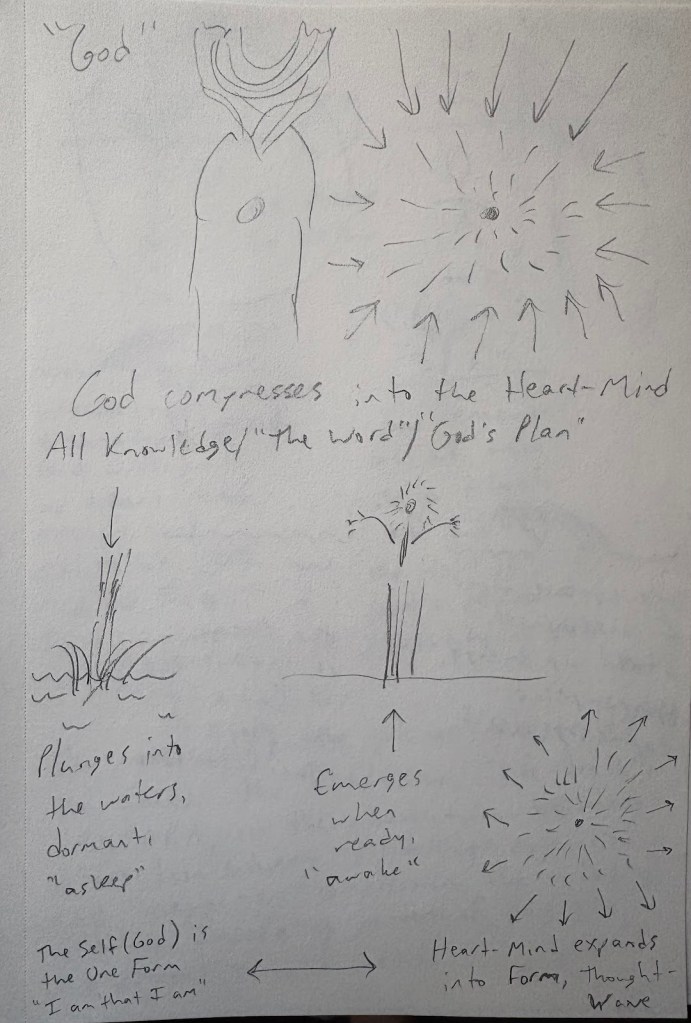 "God"
God compresses into the Heart-Mind
All Knowledge/"The Word"/"God's Plan"
Plunges into
the waters,
dormant,
"asleep"
Emerges
when
ready,
"awake"
The Self (God) is
the One Form
"I am that I am"
Heart-Mind expands
into Form, thought-
wave